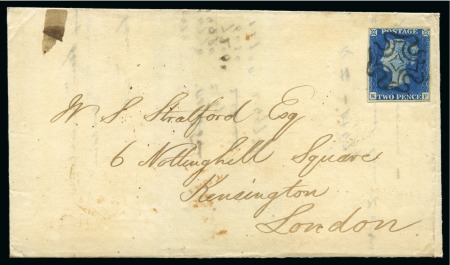 POSTAGE
K F
TWO PENCE
W. S. Stratford Esq
6 Nottinghill Square
Kensington
London